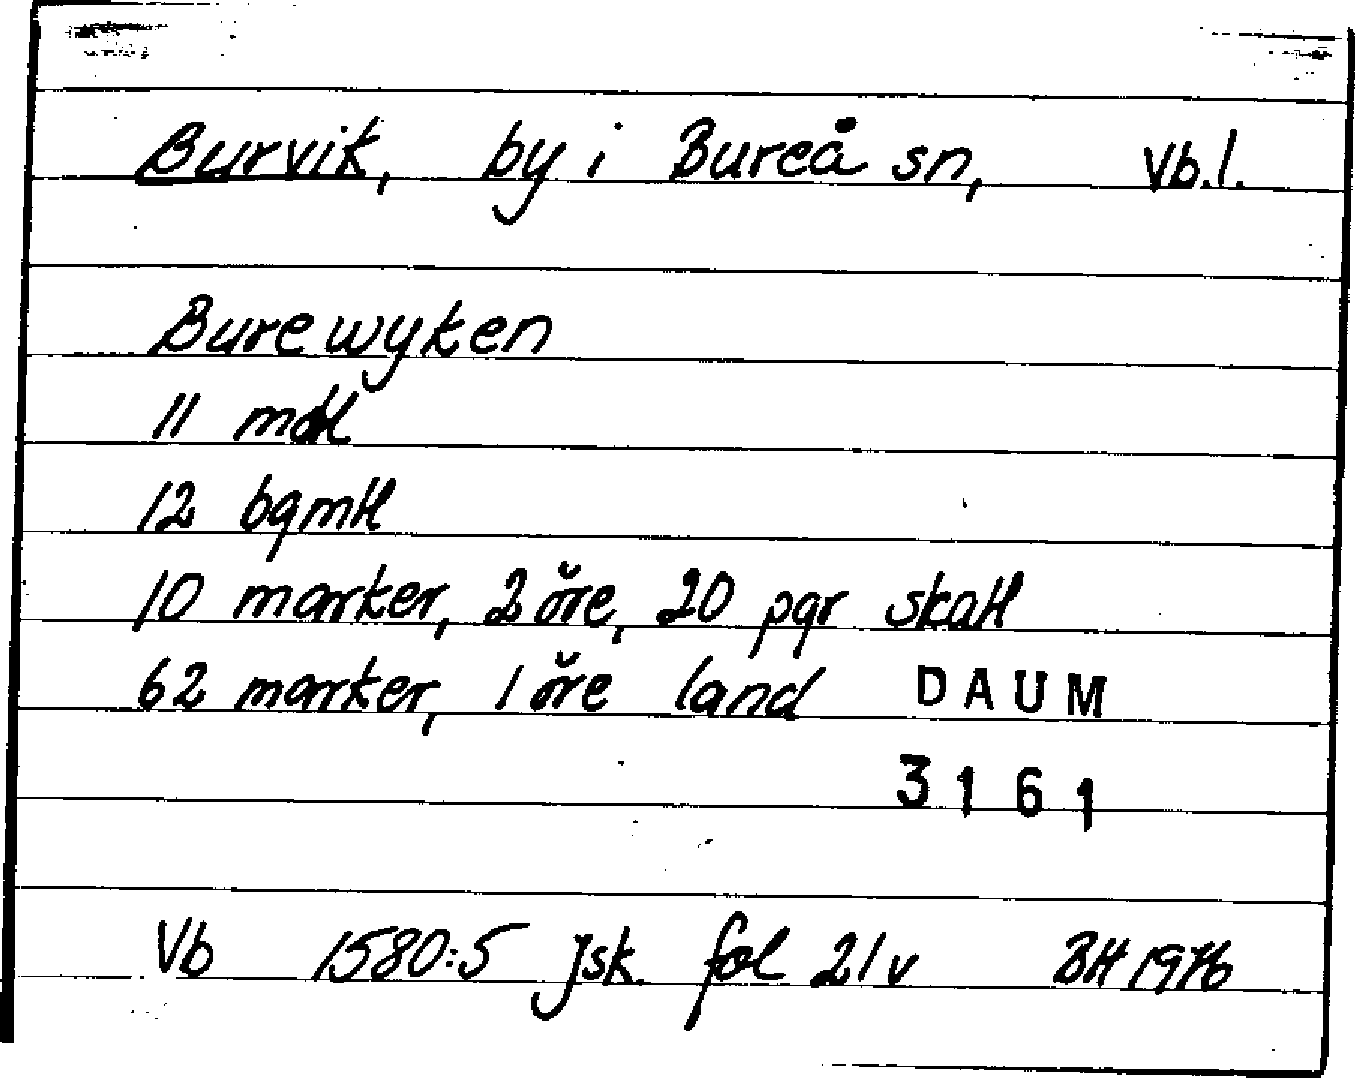 Burvik, by i Bureå sn, Vb.l.
Burewyken
11 mtl
12 bgmtl
10 marker, 2 öre, 20 pgr skatt
62 marker, 1 öre land DAUM
3161
Vb 1580:5 jsk. fol 21v BH 1976